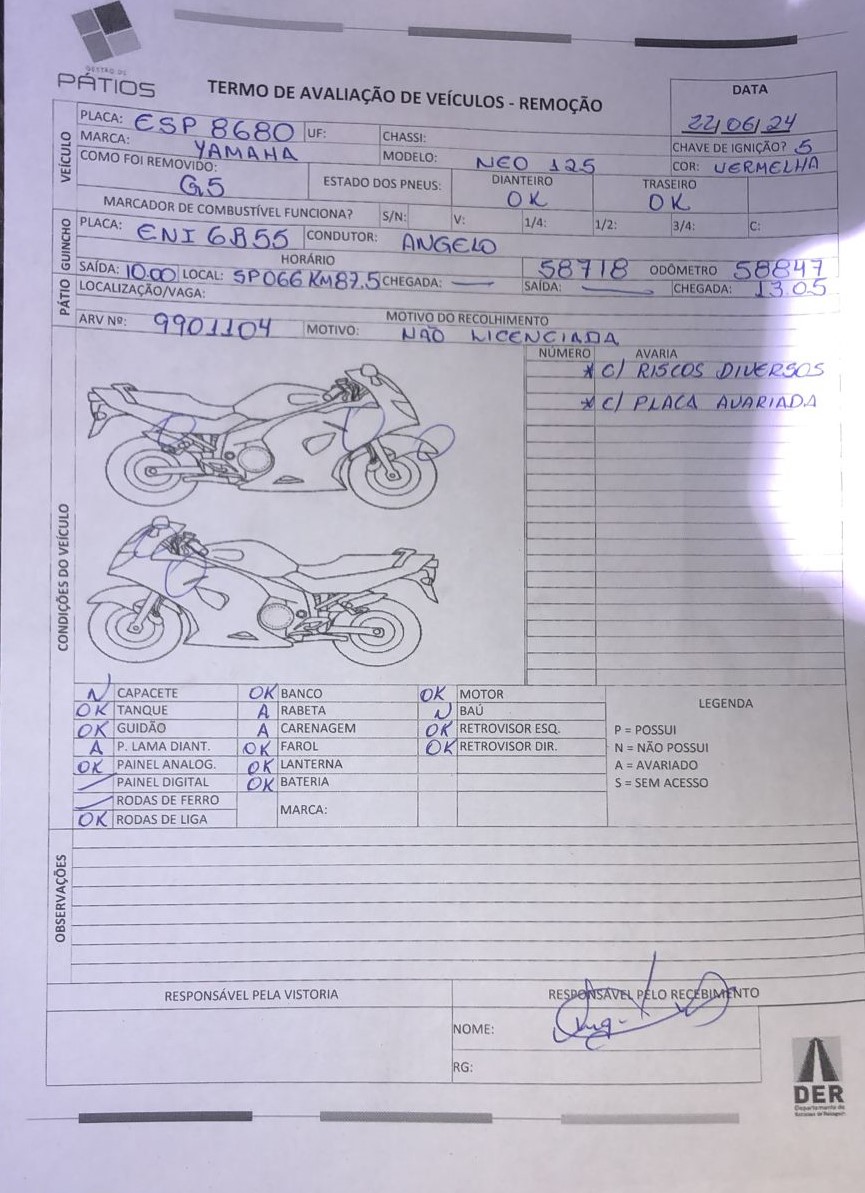 GESTÃO DE
PÁTIOS
TERMO DE AVALIAÇÃO DE VEÍCULOS - REMOÇÃO
DATA
22/06/24
VEÍCULO
PLACA: ESP 8680 UF: CHASSI:
CHAVE DE IGNIÇÃO? S
MARCA: YAMAHA MODELO: NEO 125 COR: VERMELHA
COMO FOI REMOVIDO: G5 ESTADO DOS PNEUS: DIANTEIRO OK TRASEIRO OK
MARCADOR DE COMBUSTÍVEL FUNCIONA? S/N: V: 1/4: 1/2: 3/4: C:
GUINCHO
PLACA: ENI 6B55 CONDUTOR: ANGELO
HORÁRIO 58718 ODÔMETRO 58847
SAÍDA: 10.00 LOCAL: SP066 KM87.5 CHEGADA: — SAÍDA: — CHEGADA: 13.05
PÁTIO
LOCALIZAÇÃO/VAGA:
MOTIVO DO RECOLHIMENTO
ARV Nº: 9901104 MOTIVO: NÃO LICENCIADA
CONDIÇÕES DO VEÍCULO
NÚMERO AVARIA
* C/ RISCOS DIVERSOS
* C/ PLACA AVARIADA
N CAPACETE OK BANCO OK MOTOR
OK TANQUE A RABETA N BAÚ
OK GUIDÃO A CARENAGEM OK RETROVISOR ESQ.
A P. LAMA DIANT. OK FAROL OK RETROVISOR DIR.
OK PAINEL ANALOG. OK LANTERNA
— PAINEL DIGITAL OK BATERIA
— RODAS DE FERRO
MARCA:
OK RODAS DE LIGA
LEGENDA
P = POSSUI
N = NÃO POSSUI
A = AVARIADO
S = SEM ACESSO
OBSERVAÇÕES
RESPONSÁVEL PELA VISTORIA RESPONSÁVEL PELO RECEBIMENTO
NOME:
RG:
DER
Departamento de
Estradas de Rodagem